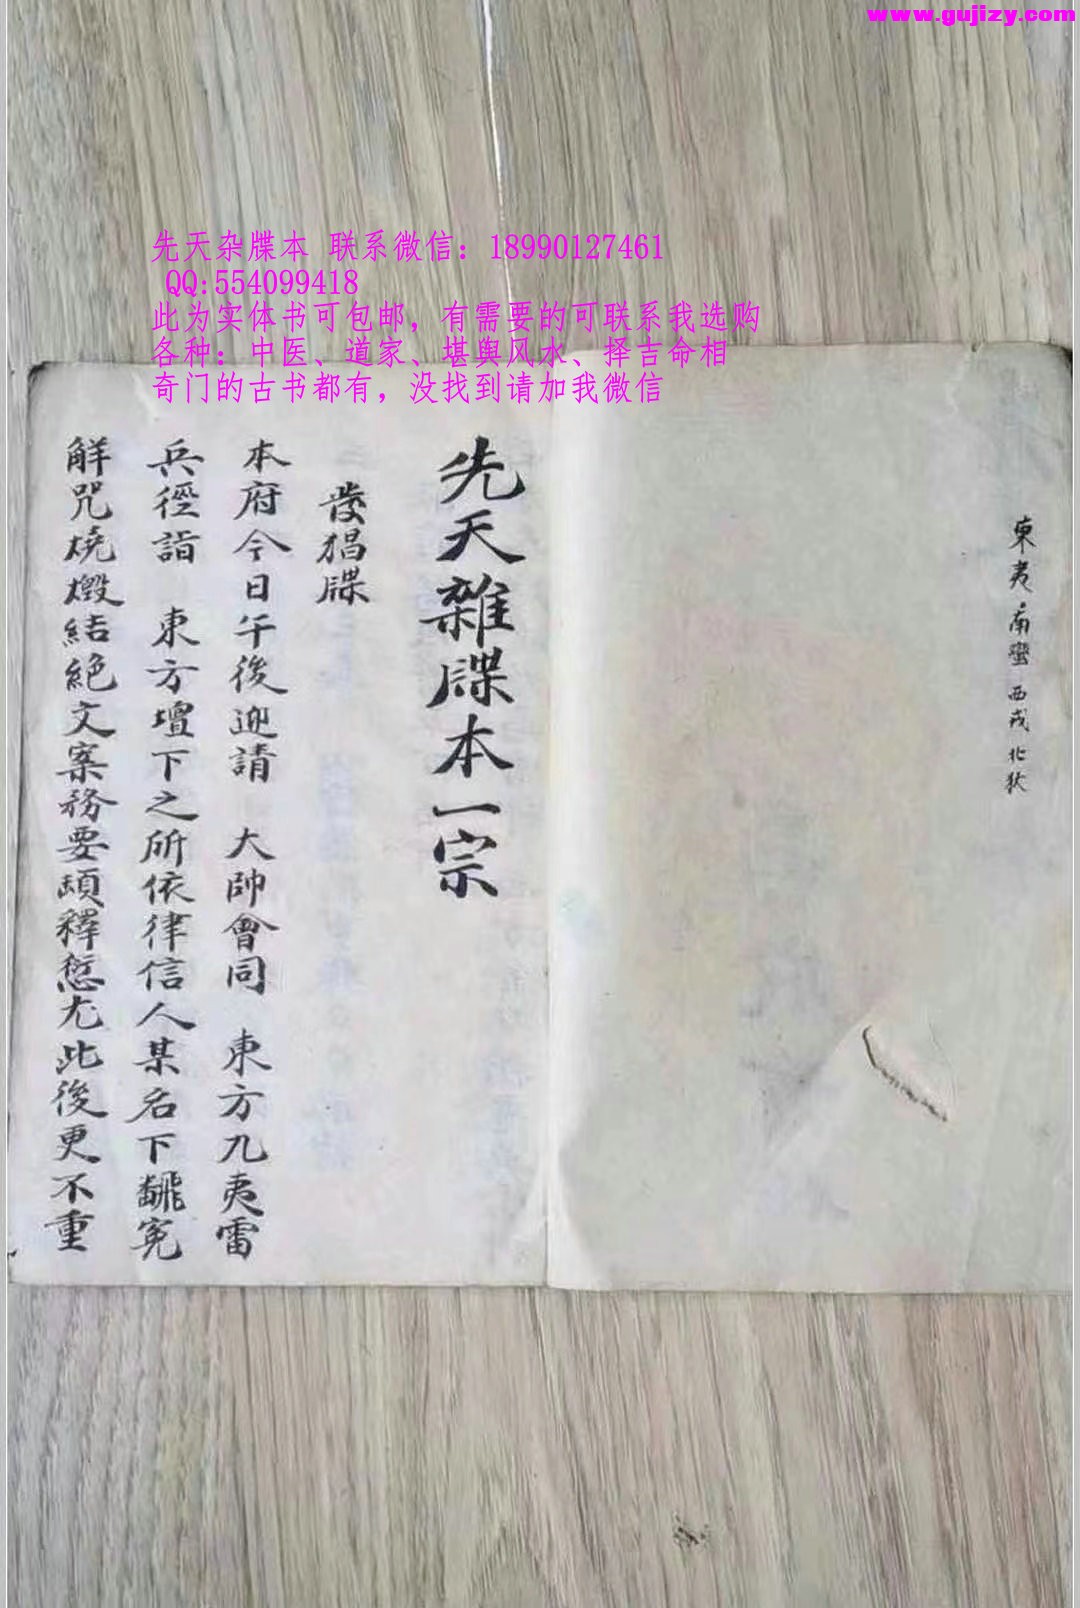 www.gujizy.com
先天杂牒本 联系微信：18990127461
QQ:554099418
此为实体书可包邮，有需要的可联系我选购
各种：中医、道家、堪舆风水、择吉命相
奇门的古书都有，没找到请加我微信
東夷 南蠻 西戎 北狄
先天雜牒本一宗
發猖牒
本府今日午後迎請 大帥會同 東方九夷雷
兵徑詣 東方壇下之所依律信人某名下翻冤
解咒燒燬結絕文案務要頓釋愆尤此後更不重